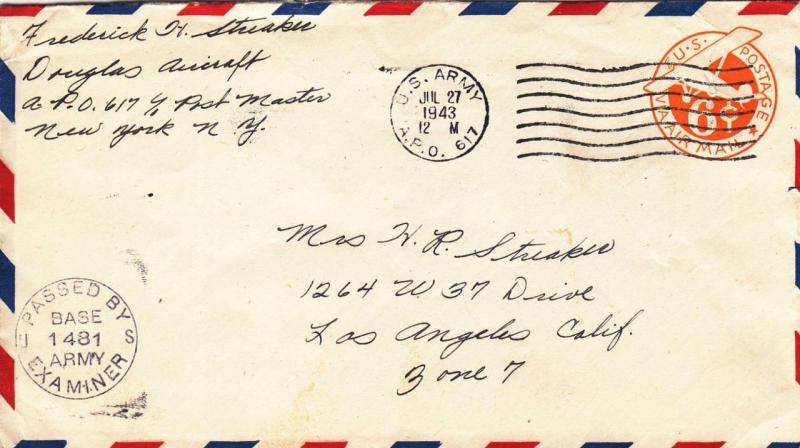 Frederick H. Streaker
Douglas Aircraft
A.P.O. 617 % Post Master
New York N.Y.
U.S. ARMY
JUL 27
1943
12 M
A.P.O. 617
U.S. POSTAGE
6¢
VIA AIR MAIL
Mrs H. R. Streaker
1264 W 37 Drive
Los Angeles Calif.
Zone 7
PASSED BY
U S
BASE
1481
ARMY
EXAMINER